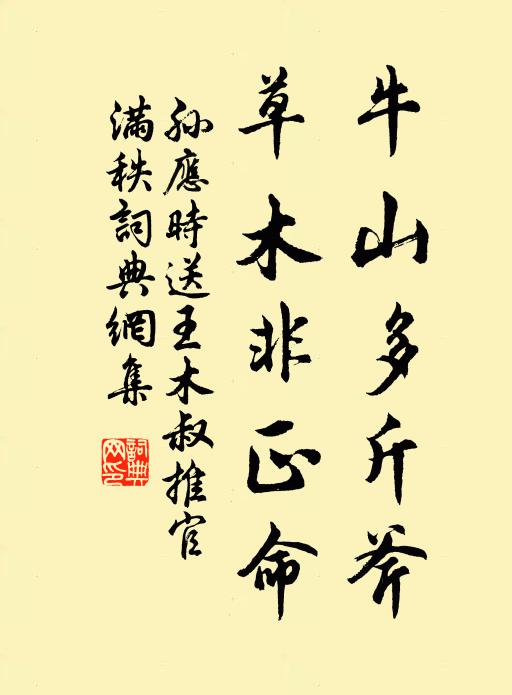 牛山多斤斧
草木非正命
孙應時送王木叔推官
滿秩詞典網集
詞典
网印